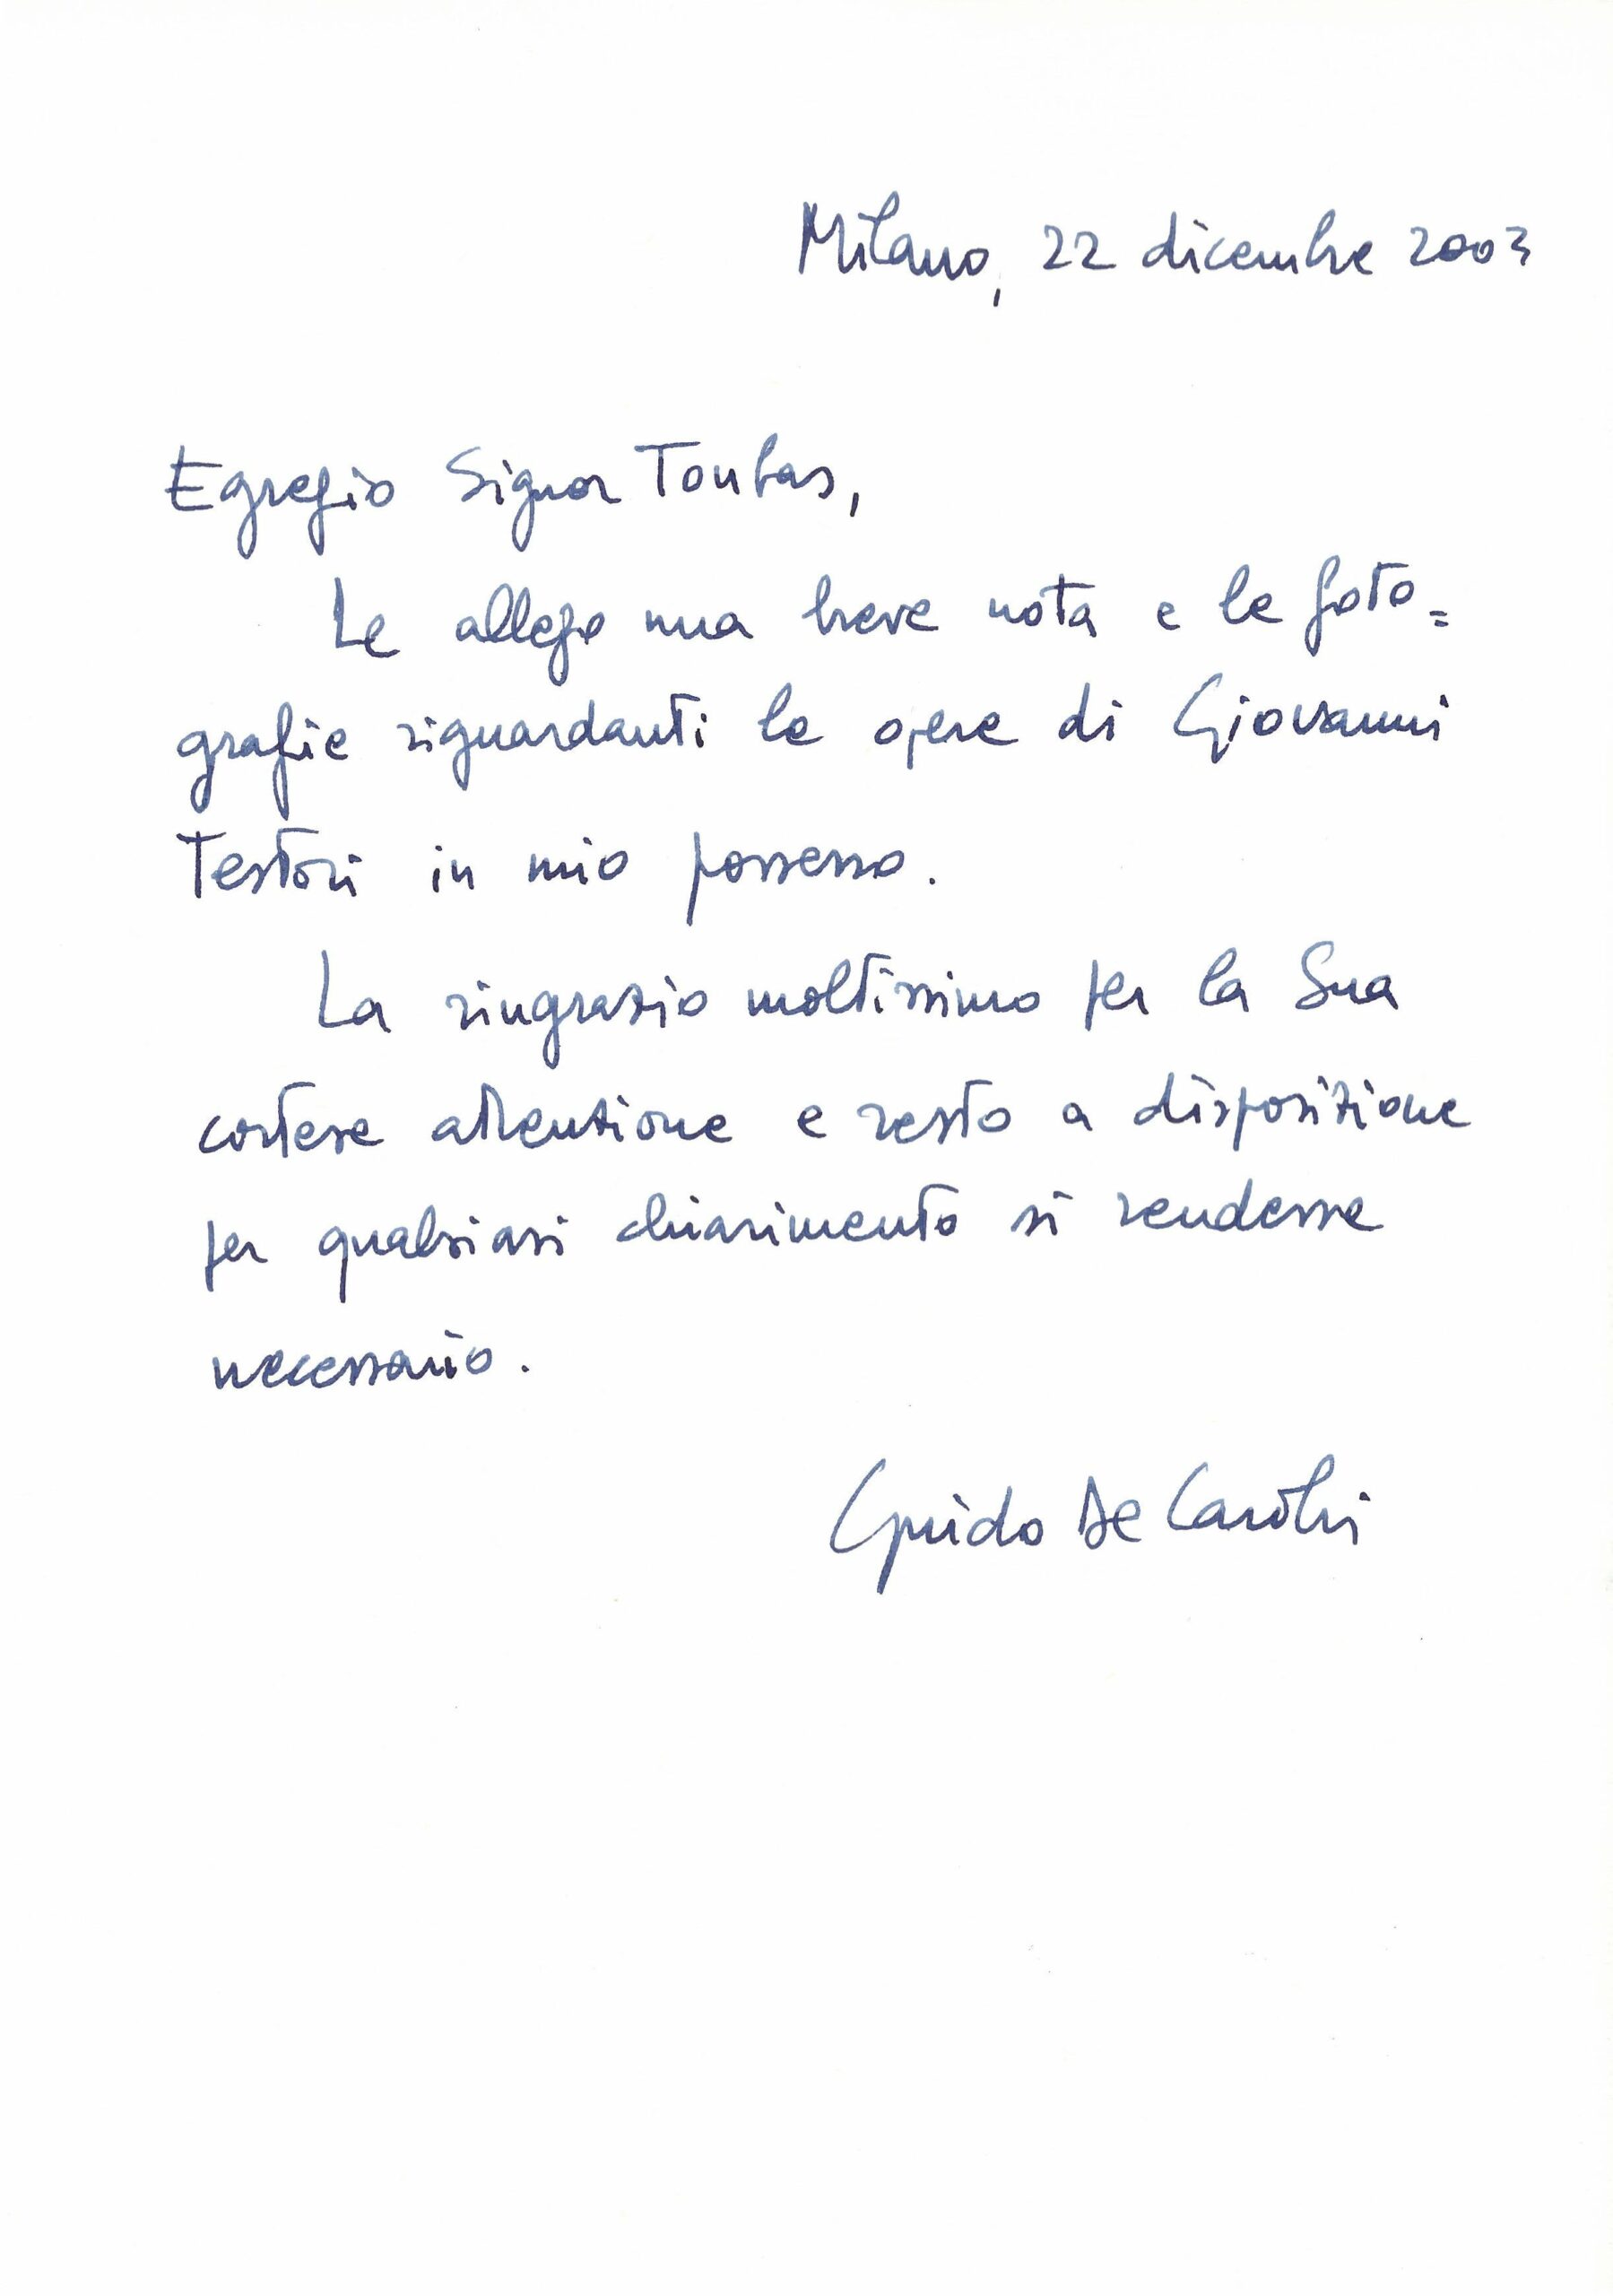 Milano, 22 dicembre 2003
Egregio Signor Toubas,
Le allego una breve nota e le foto=
grafie riguardanti le opere di Giovanni
Testori in mio possesso.
La ringrazio moltissimo per la Sua
cortese attenzione e resto a disposizione
per qualsiasi chiarimento si rendesse
necessario.
Guido De Carolis